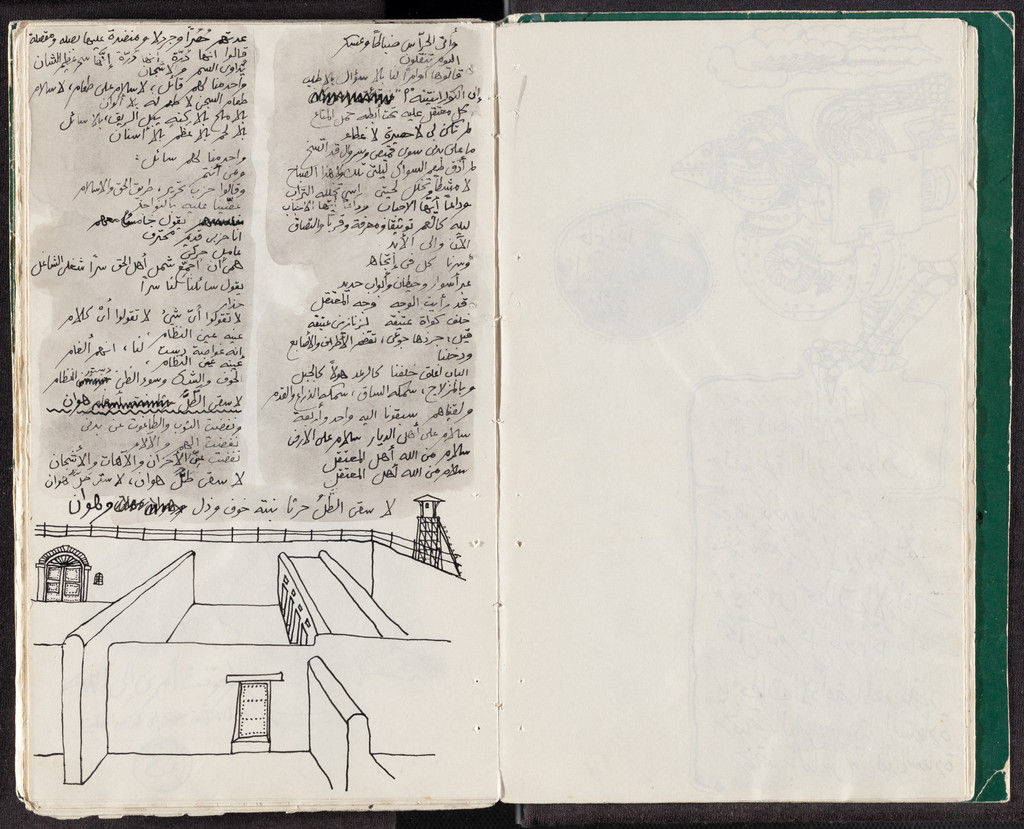 وأتى الحراس ضباطا وعسكر
اليوم تنقلون
قالوها أوامرا لنا بلا سؤال بلا طلب
إلى
كل معتقل عليه تحت أبطه حمل المتاع
لم تكن لي لا حصيرة لا غطاء
ما على بدني سوى قميص وسروال قد اتسخ
لم أذق طعم السواك ليلتي تلك ولا هذا الصباح
لا مشط تخلل لحيتي رأسي تخلله التراب
وداعا أيها الأحباب وداعا أيها الأحباب
ليلة كالدهر توثيقا ومعرفة وقربا والتصاق
الآن وإلى الأبد
وسرنا كل في إتجاه
عبر أسوار وحيطان وأبواب حديد
قد رأيت الوجه وجه المعتقل
خلف كواة عتيقة لزنازين عتيقة
قيل، جرذها جوعى، تقضم الأطراف والأصابع
ودخلنا
الباب أغلق خلفنا كالرعد هولا كالجبل
وبالمزلاج، سمكه الساق، سمكه الذراع والقدم
ولقيناهم سبقونا إليه واحد وأربعة
سلام على أهل الديار سلام على الأرض
سلام من الله أهل المعتقل
سلام من الله أهل المعتقل
عدتهم حصرا وجردلا ومنضدة عليها بصله وفصلة
قالوا انها كرة، انها كرة إنها سر عظيم الشأن
تداوي السم والأشجان
واحد منا لهم قائل، لا سلام على طعام، لا سلام
طعام السجن لا طعم له بلا ألوان
بلا ملح بلا ركنه يبل الريق، بلا سائل
بلا لحم بلا عظم بلا أسنان
واحد منا لهم سائل:
ومن أنتم
وقالوا حزب تحرير، طريق الحق والإسلام
عضينا عليه بالنواجذ
يقول خامسهم
أنا حزبي قديم محترف
عامل حركي
همي أن أجمع شمل أهل الحق سرا شغلي الشاغل
يقول سائلنا لنا سرا
حذار
لا تقولوا أي شيء لا تقولوا أي كلام
عينه عين النظام
إنه غواصة دست لنا، انهم ألغام
عينه عين النظام،
الخوف والشك وسوء الظن دستور النظام
لا سقى الطل هوان
ونفضت التوب والطاغوت عن بدني
نفضت الهم والآلام
نفضت عني الأحزان والآهات والأشجان
لا سقى طل هوان، لا سقى طل هوان
لا سقى الطل حرثا نبته خوف وذل وهوان